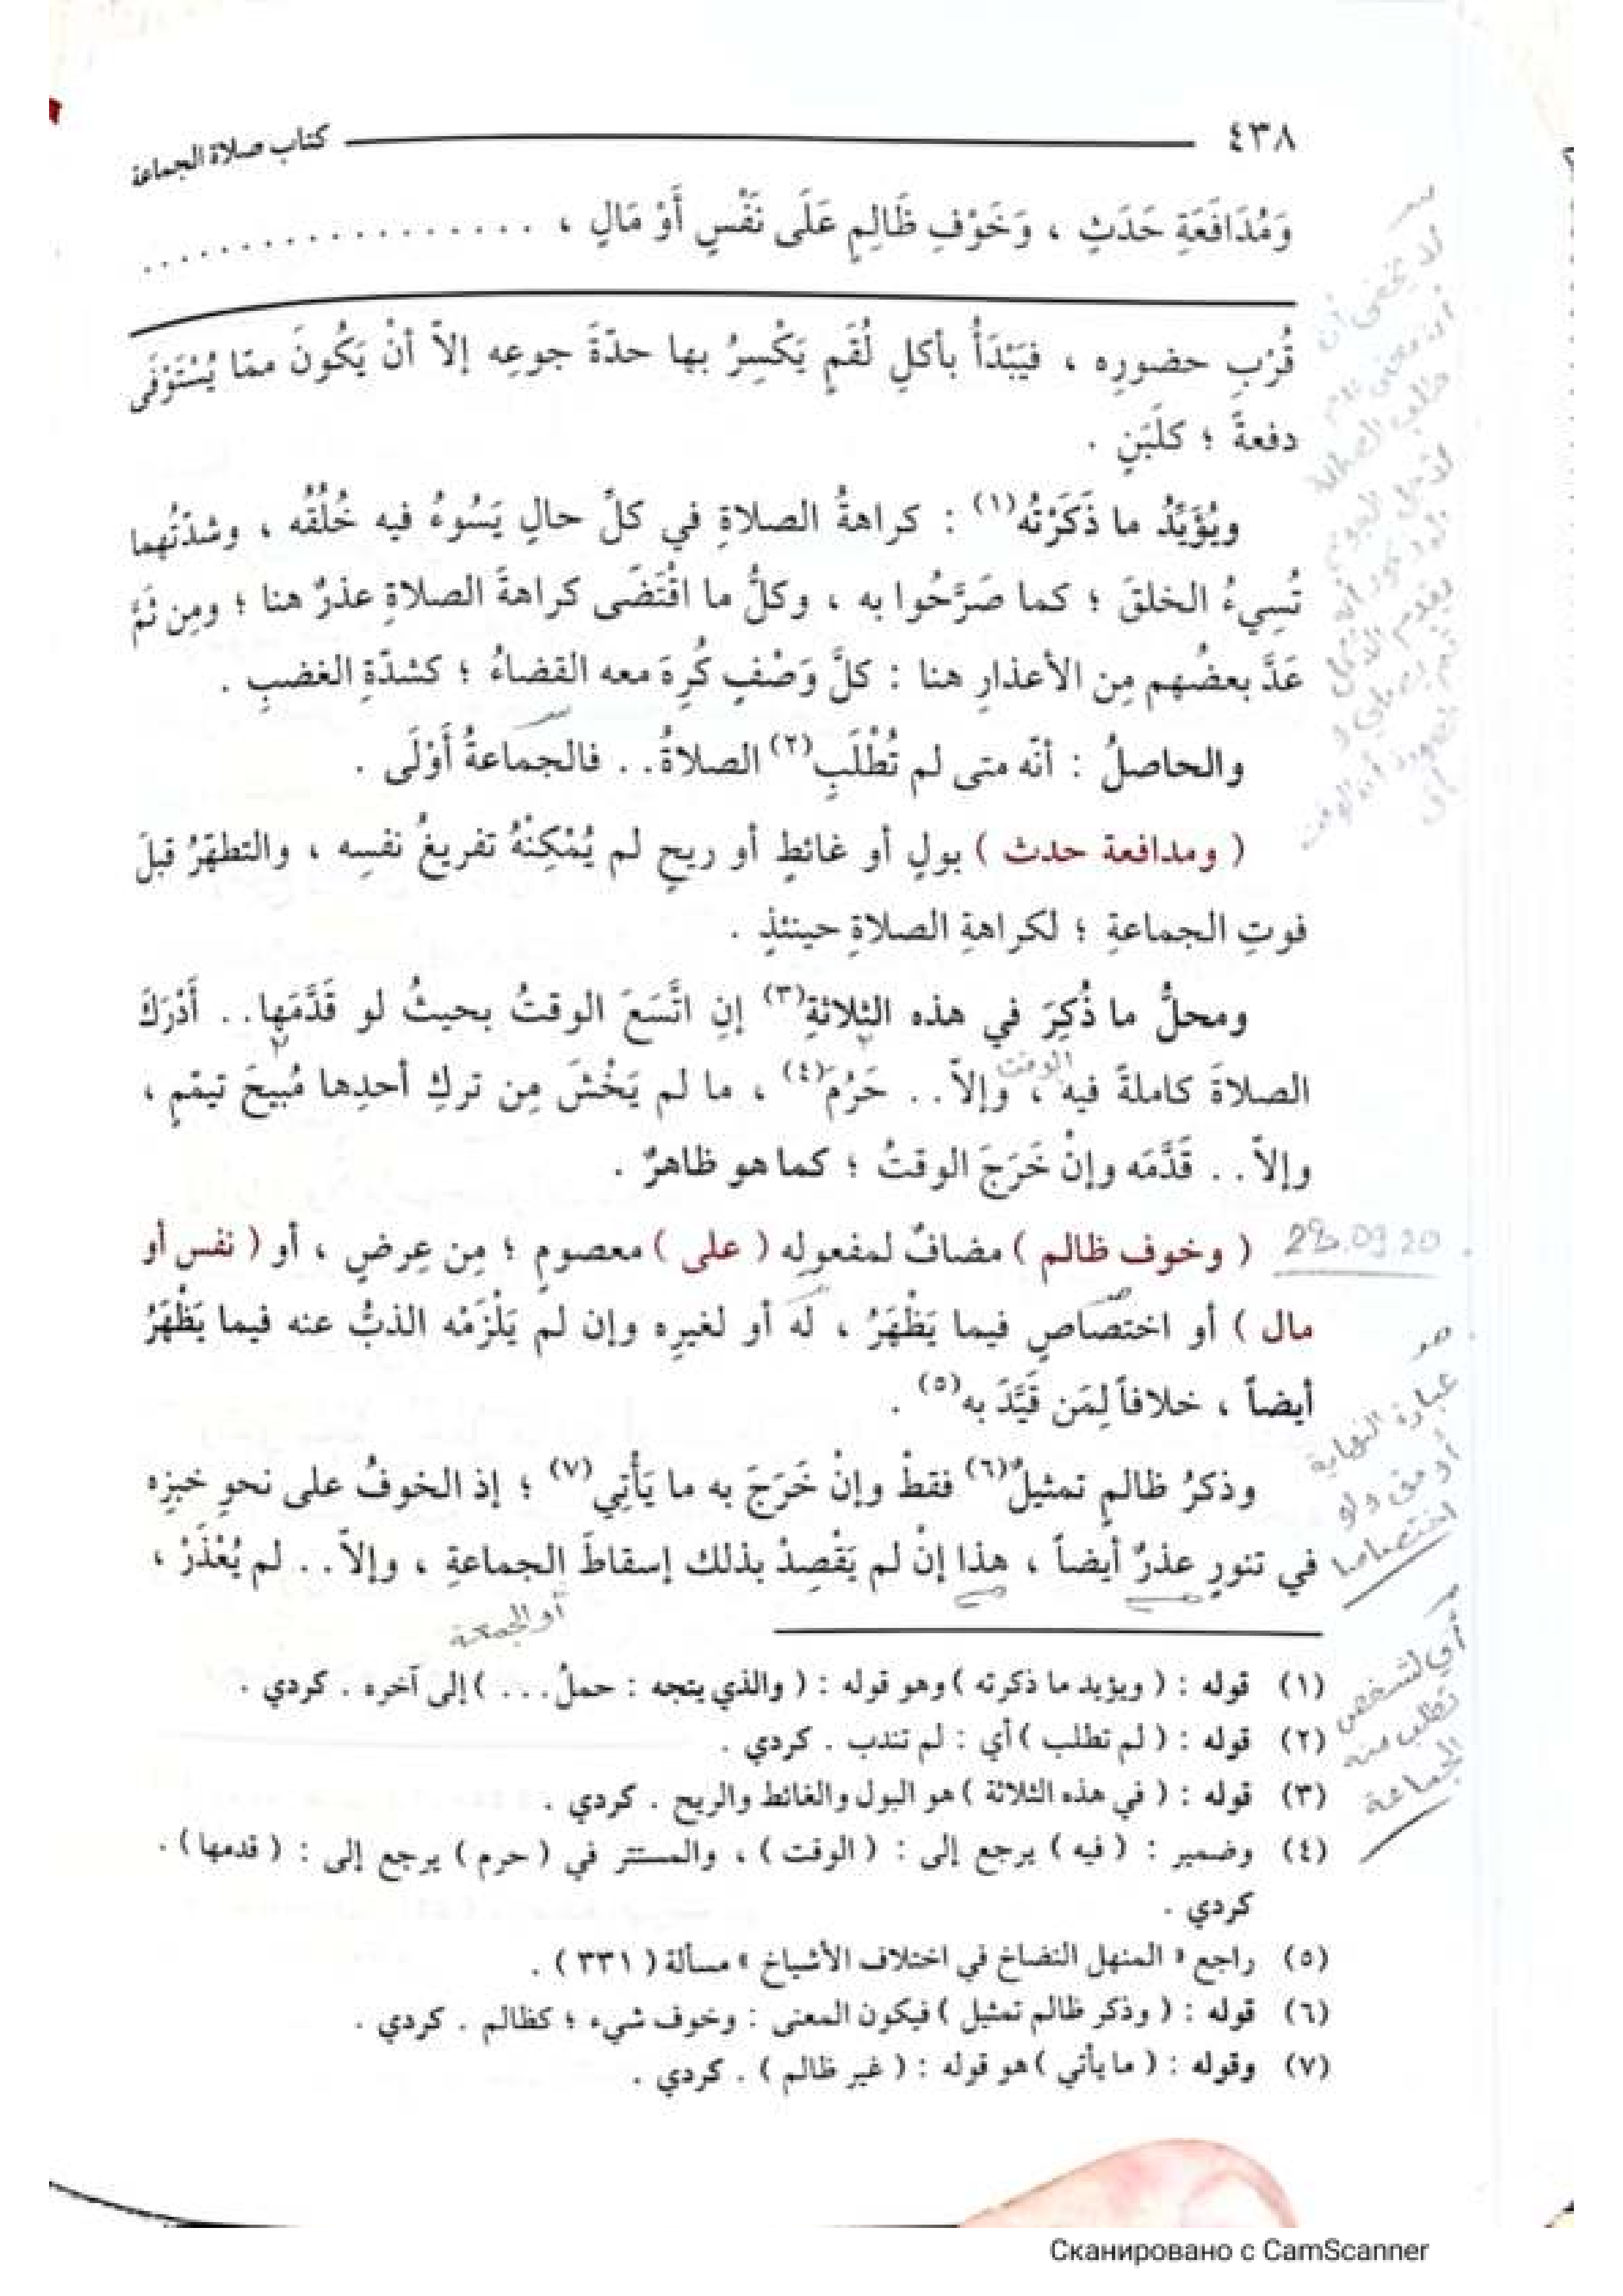 ٤٣٨ كتاب صلاة الجماعة
وَمُدَافَعَةِ حَدَثٍ ، وَخَوْفِ ظَالِمٍ عَلَى نَفْسٍ أَوْ مَالٍ ، . . . . . . . . . . . . . . . . .
قُرْبِ حضورِه ، فيَبْدَأُ بأكلِ لُقَمٍ يَكْسِرُ بها حدّةَ جوعِه إلاّ أنْ يَكُونَ ممّا يُسْتَوْفَى
دفعةً ؛ كلَبَنٍ .
ويُؤَيِّدُ ما ذَكَرْتُه(١) : كراهةُ الصلاةِ في كلِّ حالٍ يَسُوءُ فيه خُلُقُه ، وشدّتُهما
تُسِيءُ الخلقَ ؛ كما صَرَّحُوا به ، وكلُّ ما اقْتَضَى كراهةَ الصلاةِ عذرٌ هنا ؛ ومِن ثَمَّ
عَدَّ بعضُهم مِن الأعذارِ هنا : كلَّ وَصْفٍ كُرِهَ معه القضاءُ ؛ كشدّةِ الغضبِ .
والحاصلُ : أنّه متى لم تُطْلَبِ(٢) الصلاةُ . . فالجماعةُ أَوْلَى .
( ومدافعة حدث ) بولٍ أو غائطٍ أو ريحٍ لم يُمْكِنْهُ تفريغُ نفسِه ، والتطهّرُ قبلَ
فوتِ الجماعةِ ؛ لكراهةِ الصلاةِ حينئذٍ .
ومحلُّ ما ذُكِرَ في هذه الثلاثةِ(٣) إنِ اتَّسَعَ الوقتُ بحيثُ لو قَدَّمَها . . أَدْرَكَ
الوقت
الصلاةَ كاملةً فيه ، وإلاّ . . حَرُمَ(٤) ، ما لم يَخْشَ مِن تركِ أحدِها مُبِيحَ تيمّمٍ ،
وإلاّ . . قَدَّمَه وإنْ خَرَجَ الوقتُ ؛ كما هو ظاهرٌ .
28.09.20
( وخوف ظالم ) مضافٌ لمفعولِه ( على ) معصومٍ ؛ مِن عِرضٍ ، أو ( نفس أو
مال ) أو اختصاصٍ فيما يَظْهَرُ ، له أو لغيرِه وإن لم يَلْزَمْه الذبُّ عنه فيما يَظْهَرُ
أيضاً ، خلافاً لِمَن قَيَّدَ به(٥) .
وذكرُ ظالمٍ تمثيلٌ(٦) فقطْ وإنْ خَرَجَ به ما يَأْتِي(٧) ؛ إذ الخوفُ على نحوِ خبزِه
في تنورٍ عذرٌ أيضاً ، هذا إنْ لم يَقْصِدْ بذلك إسقاطَ الجماعةِ ، وإلاّ . . لم يُعْذَرْ ،
أو الجمعة
عبارة النهاية
أو حق ولو
اختصاصا
أي لشخص
تطلب منه
الجماعة
(١) قوله : ( ويؤيد ما ذكرته ) وهو قوله : ( والذي يتجه : حملُ . . . ) إلى آخره . كردي .
(٢) قوله : ( لم تطلب ) أي : لم تندب . كردي .
(٣) قوله : ( في هذه الثلاثة ) هو البول والغائط والريح . كردي .
(٤) وضمير : ( فيه ) يرجع إلى : ( الوقت ) ، والمستتر في ( حرم ) يرجع إلى : ( قدمها ) .
كردي .
(٥) راجع « المنهل النضاخ في اختلاف الأشياخ » مسألة ( ٣٣١ ) .
(٦) قوله : ( وذكر ظالم تمثيل ) فيكون المعنى : وخوف شيء ؛ كظالم . كردي .
(٧) وقوله : ( ما يأتي ) هو قوله : ( غير ظالم ) . كردي .
Сканировано с CamScanner